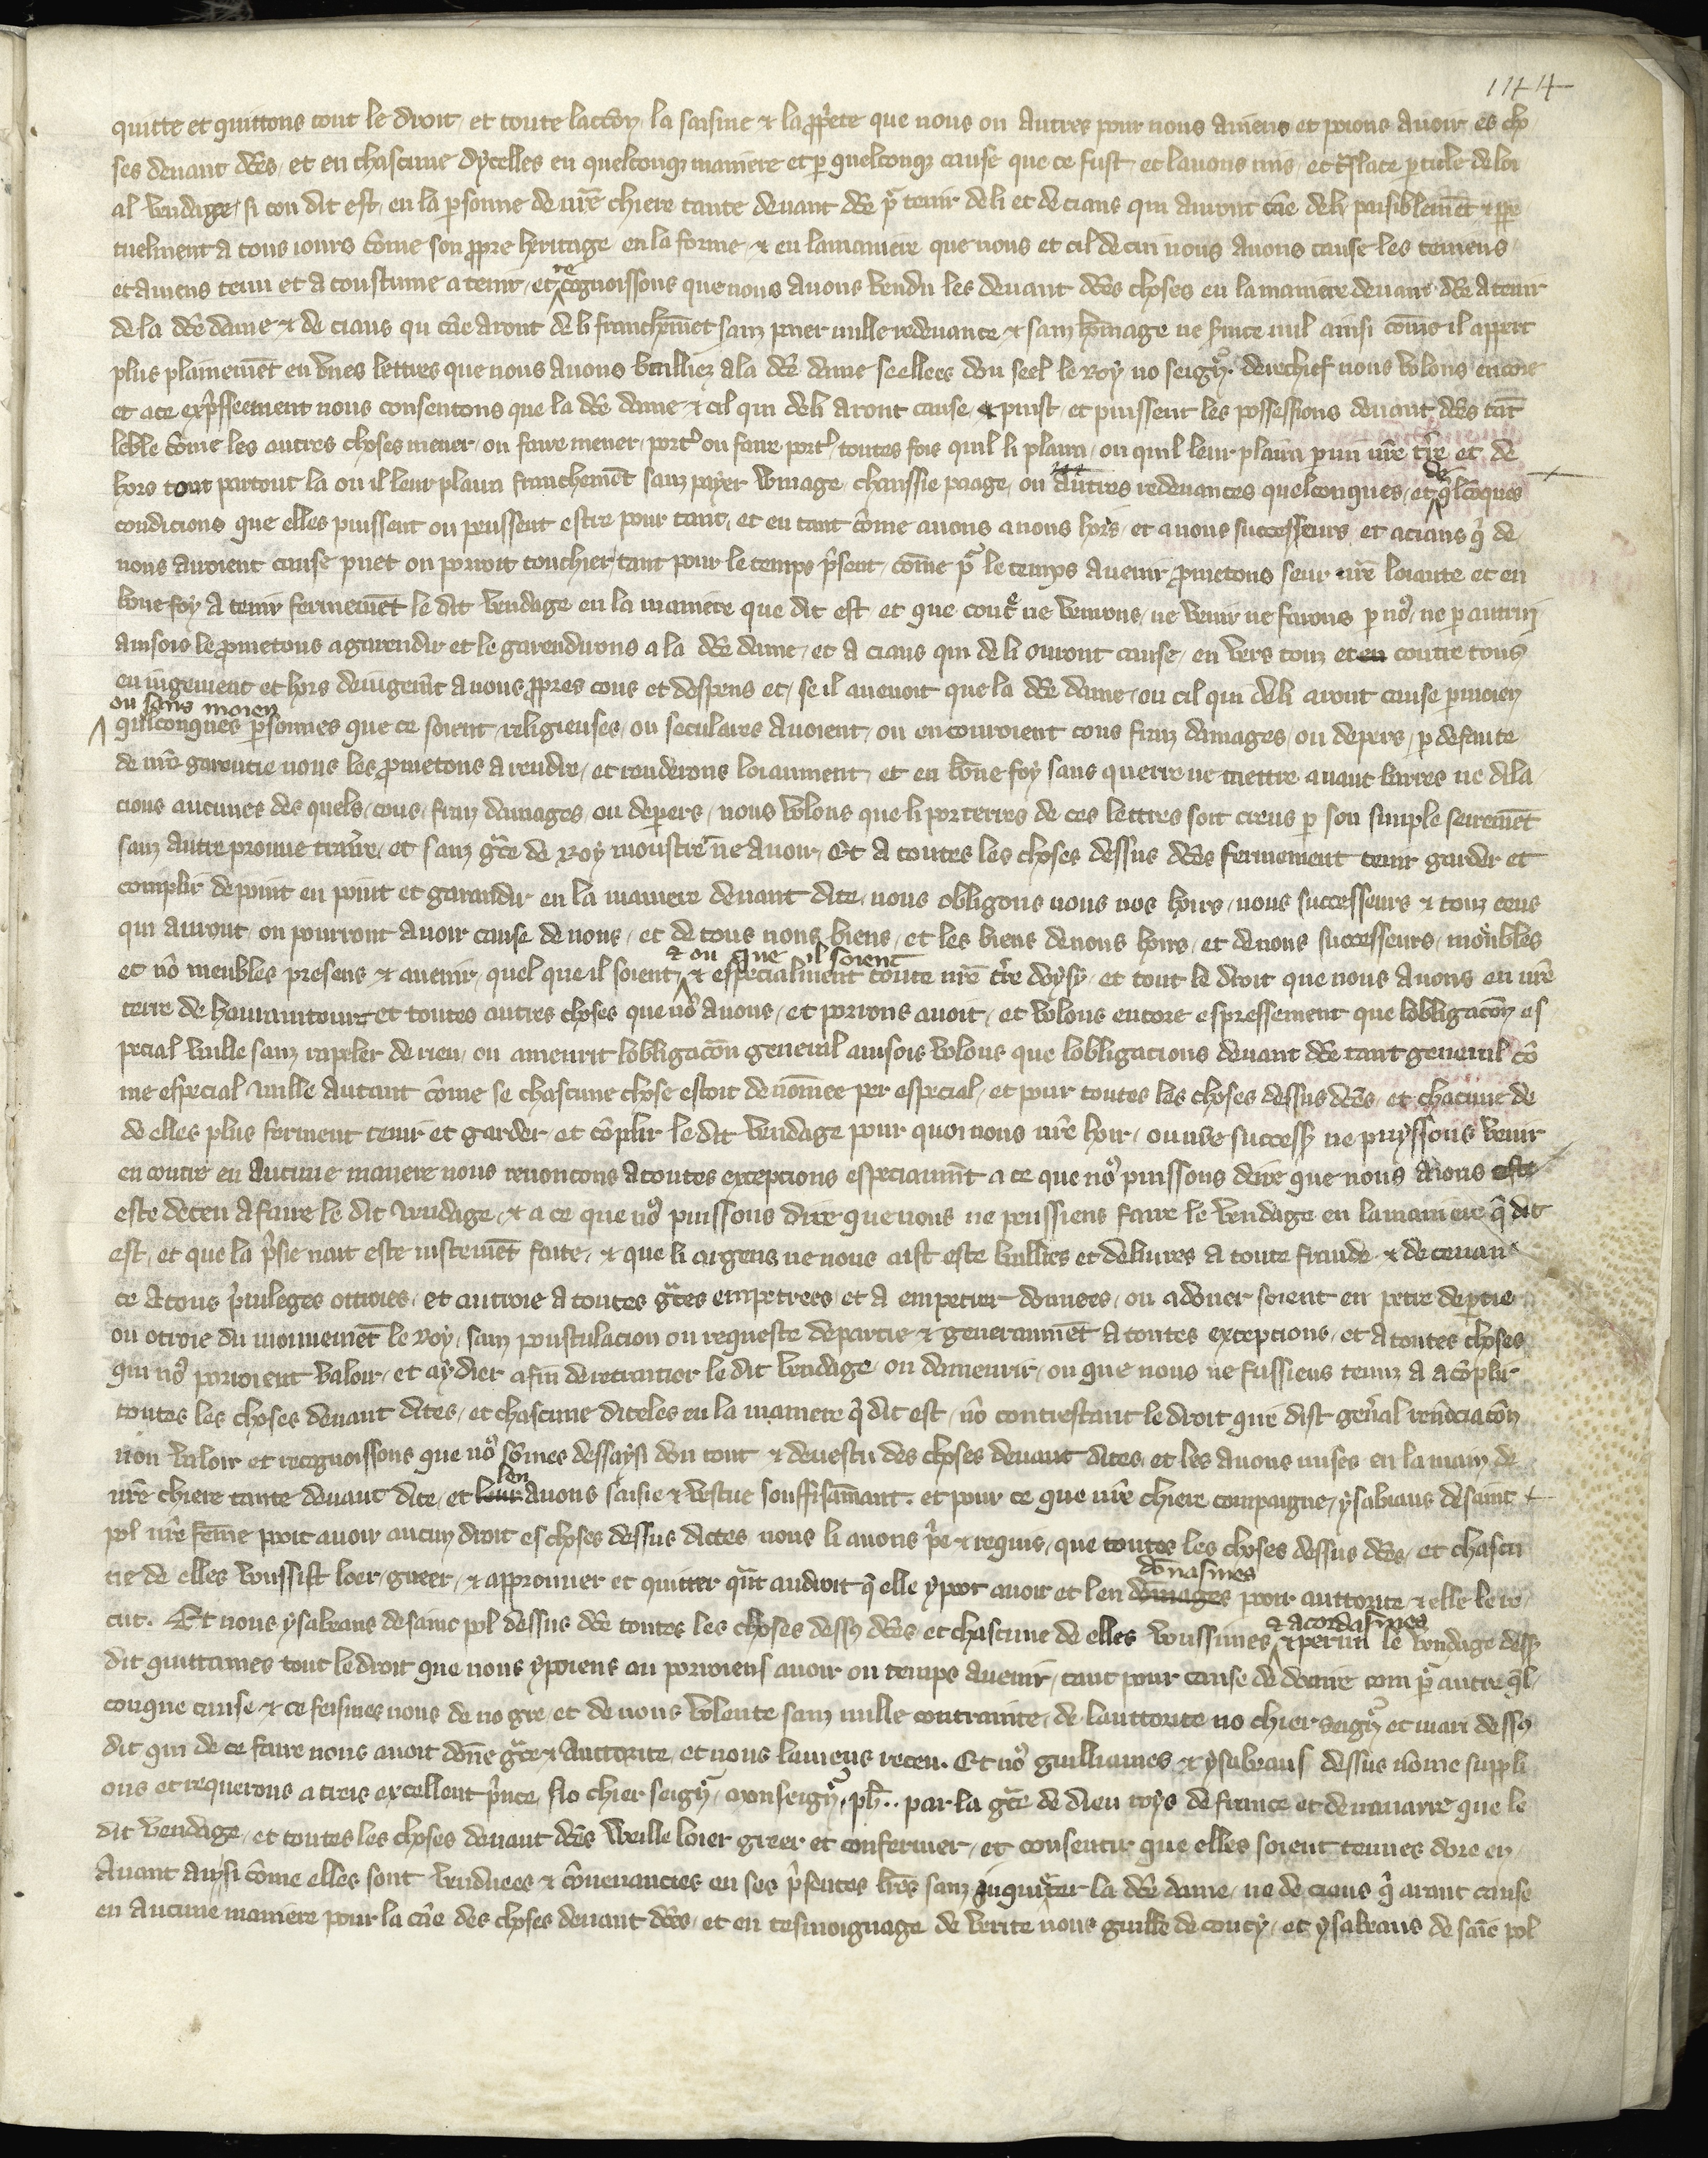 1144
quitte et quittons tout le droit et toute laction la saisine & la pprete que nous ou autres pour nous aviens et poions avoir es cho
ses devant dces et en chascune dycelles en quelconq maniere et p quelconq cause que ce fust et lavons mis et tslate p title de loi
al vendage si con dit est en la psonne de nre chiere tante devant dce pr tenir de li et de ciaus qui auront cae de li paisiblemet & ppe
tuelment a tous iours come son ppre heritage en la forme & en la maniere que nous et cil de cui nous avons cause les teniens
et aviens tenu et a coustume a tenir et recognoissons que nous avons vendu les devant dces choses en la maniere devant dce a tenir
de la dce dame & de ciaus qui cae aront de li franchemet sanz paier nulle redevance & sanz homage ne svice nul ainsi come il appert
plus plainemet en unes lettres que nous avons bailliez a la dce dame seellees dou seel le Roy no seigr. derechief nous volons encore
et a ce expssement nous consentons que la dce dame & cil qui de li aront cause puist et puissent les possessions devant dces tat
leble come les autres choses mener ou faire mener port ou faire port toutes fois quil li plaira ou quil leur plaira p mi nre tre et de
hors tout partout la ou il leur plaira franchemet sanz payer winage chaussie paage ou autres redevances quelconques et de qlcoques
condicions que elles puissent ou peussent estre pour tant et en tant come a nous a nous hoirs et a nous successeurs et a ciaus q de
nous auroient cause puet ou porroit touchier tant pour le temps psent come pr le temps avenir pmetons seur nre loiaute et en
bone foy a tenir fermemet le dit vendage en la maniere que dit est et que contre ne venrons ne venir ne farons p nos ne p autrui
ainsois le pmetons a garendir et le garendirons a la dce dame et a ciaus qui de li auront cause en vers touz et en contre tous
en iugement et hors de iugemet a nous ppres cous et despens et se il avenoit que la dce dame ou cil qui de li aront cause p moien
ou sans moien
quelconques psonnes que ce soient religieuses ou seculeres avoient ou encouroient cous fraiz damages ou depers p defaute
de nre garentie nous les pmetons a rendre et renderons loiaument et en bone foy sans querre ne mettre avant barres ne dila
cions aucunes des quels cous fraiz damages ou depers nous volons que li porterres de ces lettres soit creus p son simple sairemet
sanz autre prouve traire et sanz gce de Roy moustrer ne avoir Et a toutes les choses dessus dces fermement tenir garder et
complir de point en point et garandir en la maniere devant dite nous obligons nous nos hoirs nous successeurs & touz ceus
qui auront ou pourront avoir cause de nous et de tous nous biens et les biens de nous hoirs et de nous successeurs moebles
et no meubles presens & avenir quel que il soient & ou que il soient & especialment toute nre tre doysy et tout le droit que nous avons en nre
terre de et toutes autres choses que nos avons et porrons avoir et volons encore espressement que lobligacon es
pecial vaille sanz rapeler de rien ou amenrir lobligacon general ainsois volons que lobligacions devant dce tant general co
me especial vaille autant come se chascune chose estoit denomee per especial et pour toutes les choses dessus dces et chacune de
de elles plus ferment tenir et garder et coplir le dit vendage pour quoi nous nre hoir ou nre success ne puyssons venir
en contre en aucune maniere nous renoncons a toutes exceptions especiaumt a ce que nos puissons deire que nous aions este
este deceu a faire le dit vendage & a ce que nos puissons dire que nous ne peussiens faire le vendage en la maniere q dit
est et que la psie nait este iustemet faite & que li argens ne nous aist este baillies et delivres a toute fraude & decevan
ce a tous pruleges ottroies et autroie a toutes gces empetrees et a empetrer donnees ou a doner soient en petre de ptie
ou otroie du mouvemet le Roy sanz poustulacion ou requeste de partie & generaumet a toutes exceptions et a toutes choses
qui nos porroient valoir et aydier afin de retraitier le dit vendage ou damenrir ou que nous ne fussiens tenuz a acoplir
toutes les choses devant dites et chascune diceles en la maniere q dit est no contrestant le droit que dist general renociacon
non valoir et recognoissons que nos somes dessaysi dou tout & devestu des choses devant dites et les avons mises en la main de
nre chiere tante devant dite et len avons saisie & vestue souffisamant. et pour ce que nre chiere compaigne ysabiaus de saint
pol nre feme poit avoir aucun droit es choses dessus dictes nous li avons pe & requis que toutes les choses dessus dces et chascu
ne de elles voussist loer greer & approuver et quitter qut au droit q elle y poot avoir et len donasmes pooir auttorite & elle le re
cut. Et nous ysabeaus de saint pol dessus dce toutes les choses dess dces et chascune de elles voussimes & acordasmes & le vendage dess
dit quittames tout le droit que nous y poiens ou porroiens avoir ou temps avenir tant pour cause de douaire com pr autre ql
conque cause & ce feismes nous de no gre et de nous volente sanz nulle contrainte de lauttorite no chier seigr et mari dess
dit qui de ce faire nous avoit done gce & auttorite et nous laviens receu. Et nos guilliaumes & ysabeaus dessus nome suppli
ons et requerons a tres excellent pnce No chier seigr Monseigr ph.. par la gce de dieu roys de france et de navarre que le
dit vendage et toutes les choses devant dces weille loier greer et confermer et consentir que elles soient tenues dore en
avant aynsi come elles sont vendues & covenancies en ses psentes lres sanz inquieter la dce dame ne de ciaus q arant cause
en aucune maniere pour la cae des choses devant dces et en tesmoignage de verite nous guille de coucy et ysabeaus de saint pol